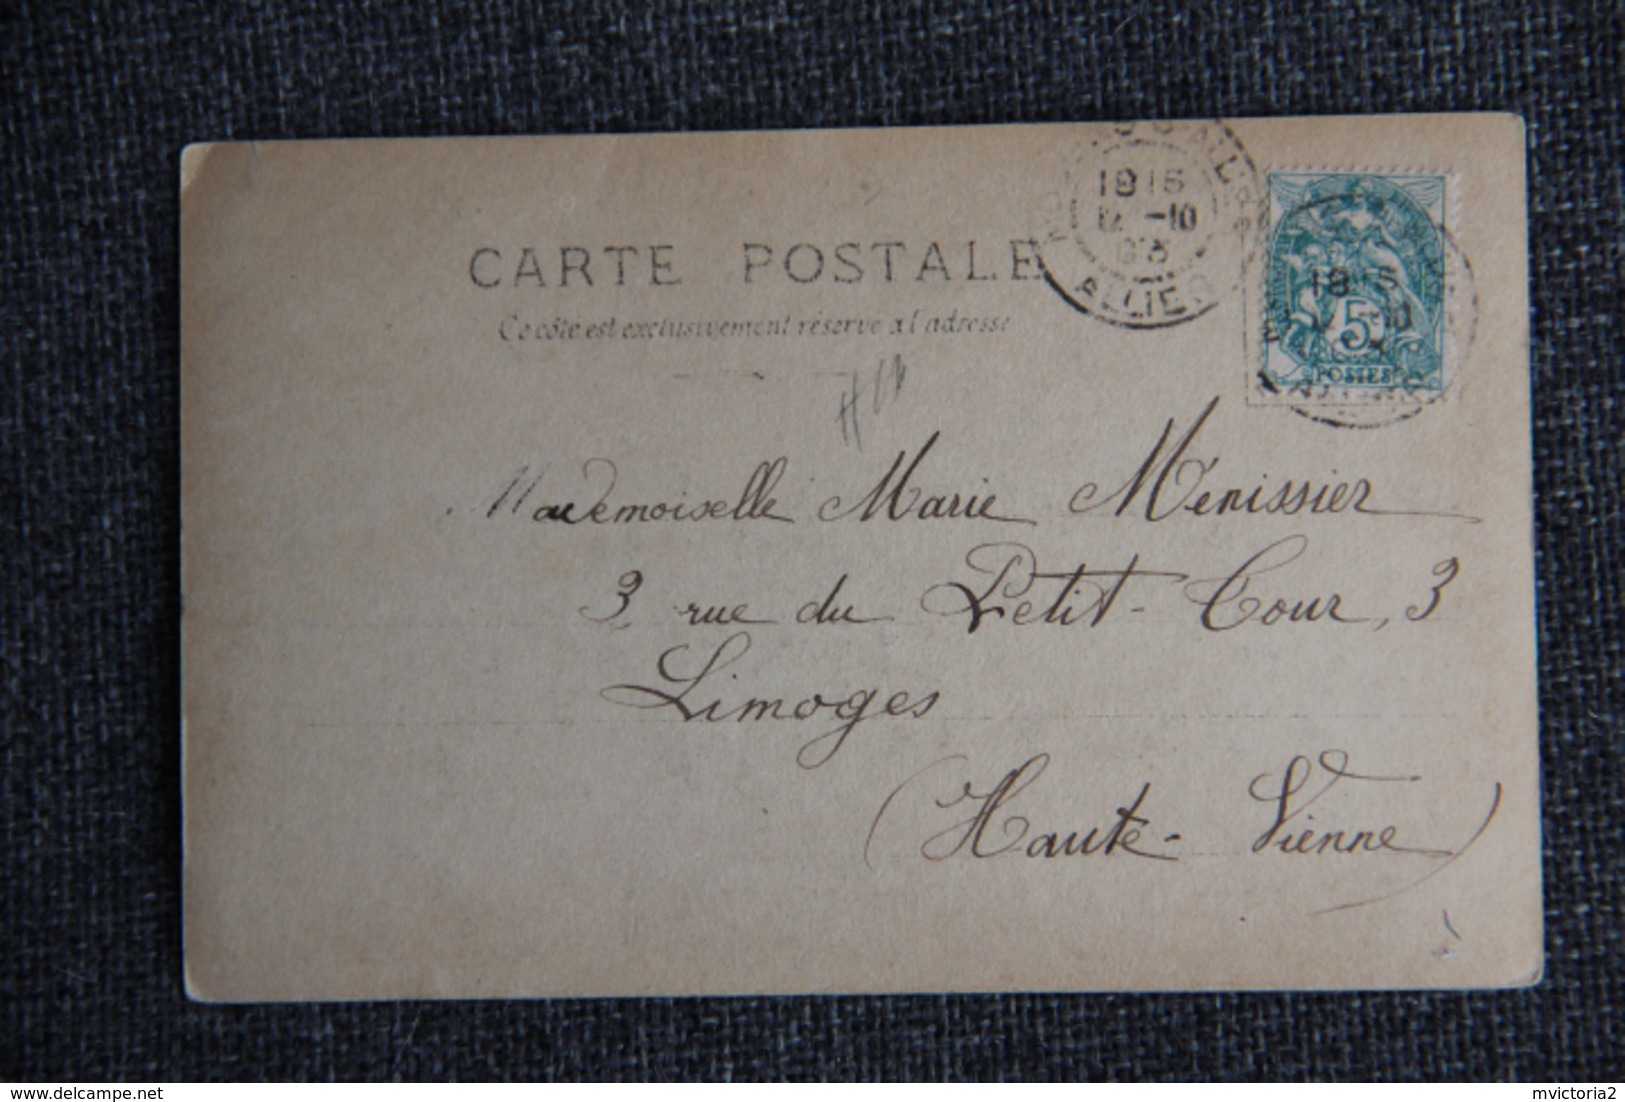 CARTE POSTALE
Ce côté est exclusivement réservé à l'adresse
1915
12 -10
03
ALLIER
5
POSTES
Mademoiselle Marie Ménissier
3, rue du Petit-Cour, 3
Limoges
(Haute-Vienne)
delcampe.net
mvictoria2